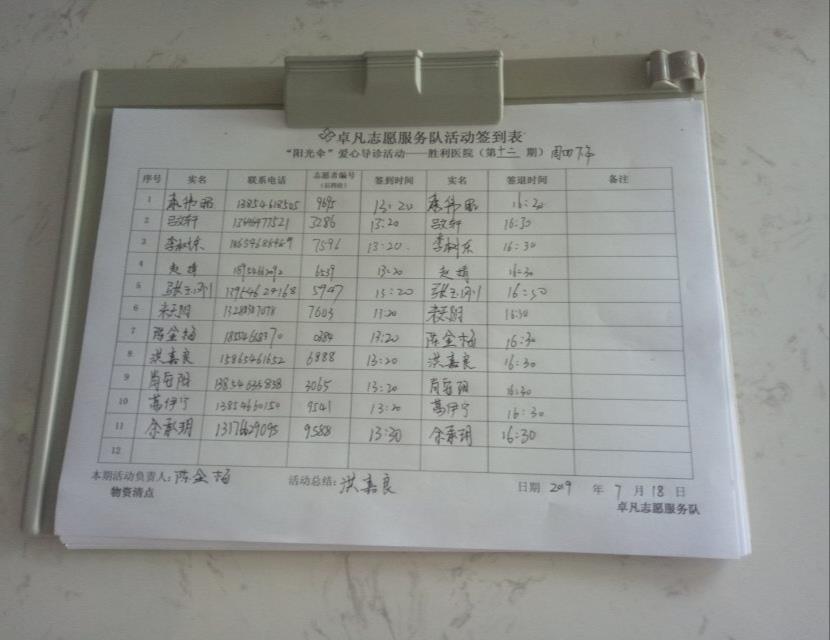 卓凡志愿服务队活动签到表
“阳光伞”爱心导诊活动——胜利医院（第十二期）周四下午
序号 实名 联系电话 志愿者编号 签到时间 实名 签退时间 备注
（后四位）
1 13854618505 9695 13:20 16:20
2 吕文轩 13646477521 3286 13:20 吕文轩 16:30
3 李树东 18654686469 7596 13:20. 李树东 16:30
4 赵靖 6539 13:20 赵靖 16:30
5 张玉刚 13954624168 5947 13:20 张玉刚 16:50
6 7603 13:20 16:30
7 陈金梅 0384 13:20 陈金梅 16:30
8 洪嘉良 15865461652 6888 13:20 洪嘉良 16:30
9 13854635838 3065 13:20 16:30
10 葛伊宁 13854660150 9541 13:20 葛伊宁 16:30
11 13176629095 9588 13:30 16:30
12
本期活动负责人：陈金梅 活动总结：洪嘉良 日期 2019 年 7 月 18 日
物资清点 卓凡志愿服务队